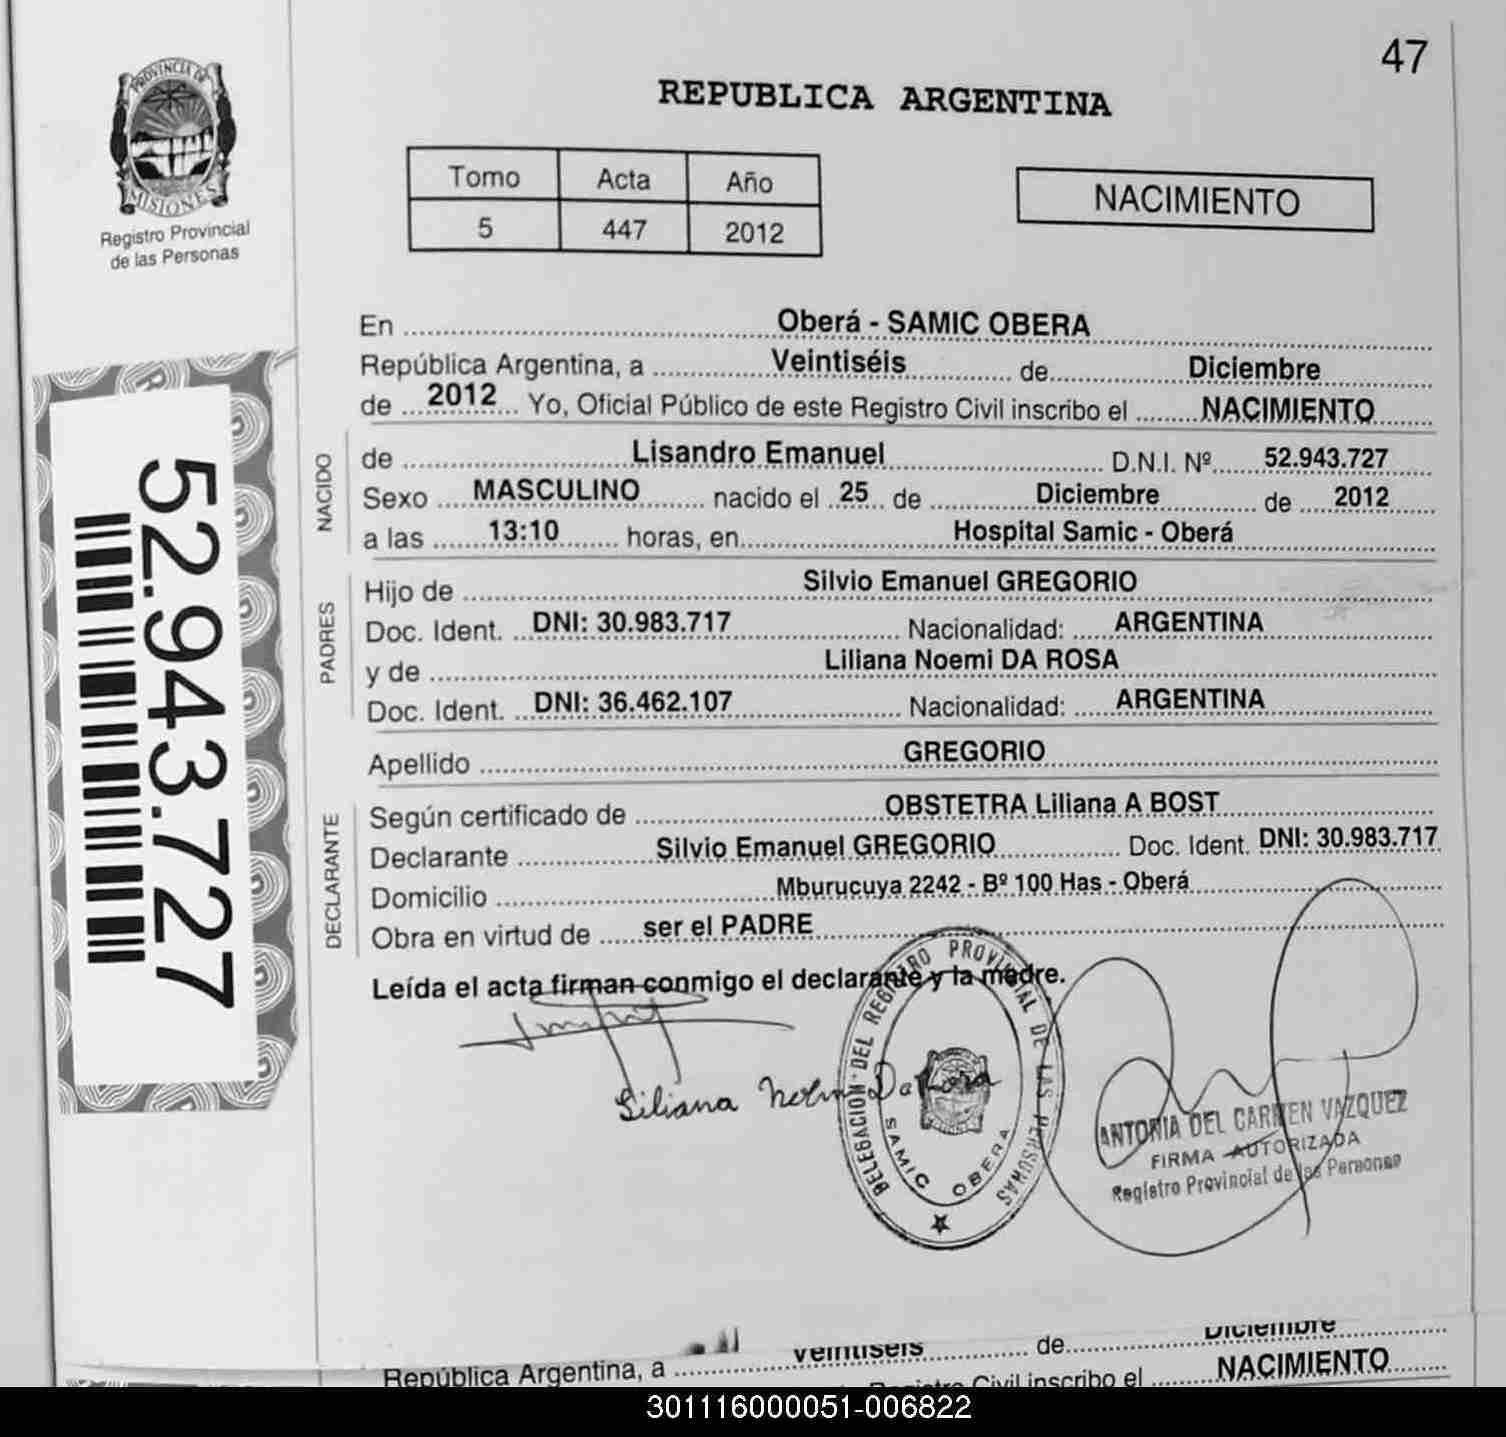 47
REPUBLICA ARGENTINA
PROVINCIA DE
MISIONES
Registro Provincial
de las Personas
Tomo Acta Año
5 447 2012
NACIMIENTO
En Oberá - SAMIC OBERA
República Argentina, a Veintiséis de Diciembre
de 2012 Yo, Oficial Público de este Registro Civil inscribo el NACIMIENTO
NACIDO
de Lisandro Emanuel D.N.I. Nº 52.943.727
Sexo MASCULINO nacido el 25 de Diciembre de 2012
a las 13:10 horas, en Hospital Samic - Oberá
PADRES
Hijo de Silvio Emanuel GREGORIO
Doc. Ident. DNI: 30.983.717 Nacionalidad: ARGENTINA
y de Liliana Noemi DA ROSA
Doc. Ident. DNI: 36.462.107 Nacionalidad: ARGENTINA
Apellido GREGORIO
DECLARANTE
Según certificado de OBSTETRA Liliana A BOST
Declarante Silvio Emanuel GREGORIO Doc. Ident. DNI: 30.983.717
Domicilio Mburucuya 2242 - Bº 100 Has - Oberá
Obra en virtud de ser el PADRE
Leída el acta firman conmigo el declarante y la madre.
52.943.727
Liliana Da Rosa
DELEGACION DEL REGISTRO PROVINCIAL DE LAS PERSONAS
SAMIC OBERA
ANTONIA DEL CARMEN VAZQUEZ
FIRMA AUTORIZADA
Registro Provincial de las Personas
República Argentina, a Veintiséis de Diciembre
Registro Civil inscribo el NACIMIENTO
301116000051-006822